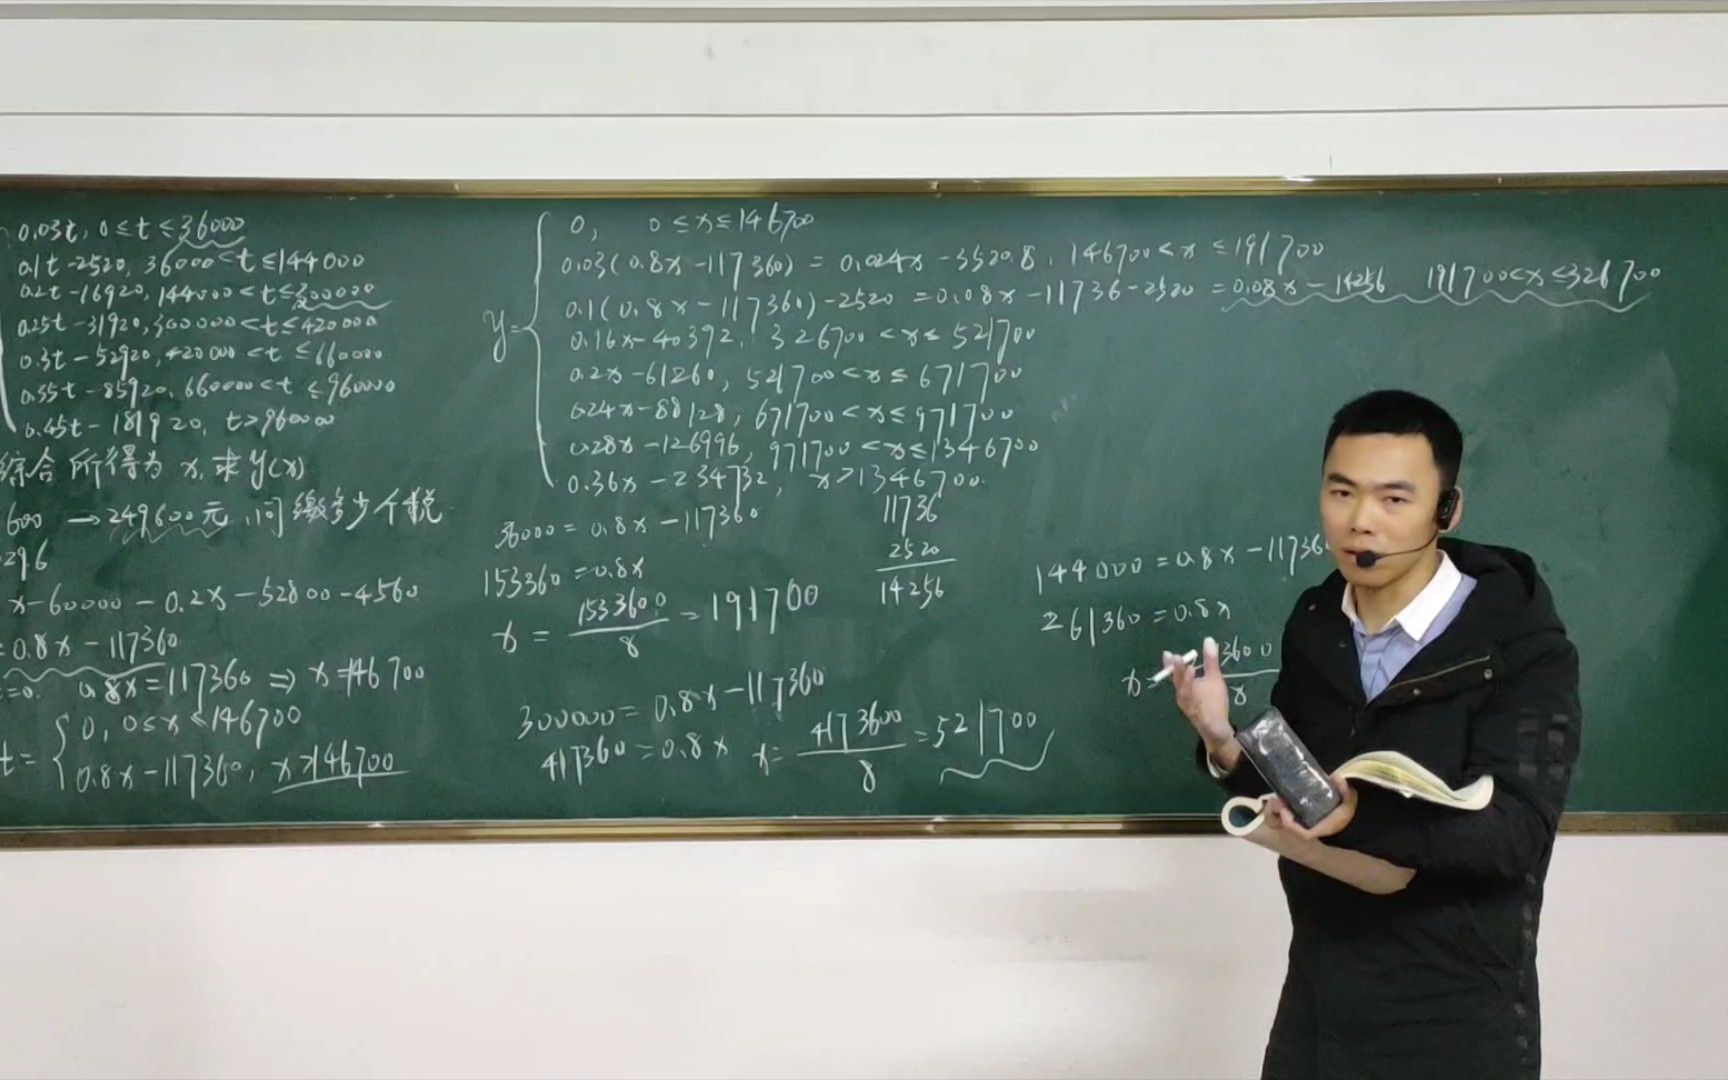 0.03t, 0≤t≤36000
0.1t-2520, 36000<t≤144000
0.2t-16920, 144000<t≤300000
0.25t-31920, 300000<t≤420000
0.3t-52920, 420000<t≤660000
0.35t-85920, 660000<t≤960000
0.45t-181920, t>960000
综合所得为x,求y(x)
600 →249600元,问缴多少个税
296
x-60000-0.2x-52800-4560
=0.8x-117360
=0. 0.8x=117360⇒x=146700
t={
0, 0≤x≤146700
0.8x-117360, x>146700
y={
0, 0≤x≤146700
0.03(0.8x-117360)=0.024x-3520.8, 146700<x≤191700
0.1(0.8x-117360)-2520=0.08x-11736-2520=0.08x-14256 191700<x≤326700
0.16x-40392, 326700<x≤521700
0.2x-61260, 521700<x≤671700
0.24x-88128, 671700<x≤971700
0.28x-126996, 971700<x≤1346700
0.36x-234732, x>1346700.
36000=0.8x-117360
153360=0.8x
x=1533600/8=191700
11736
2520
14256
300000=0.8x-117360
417360=0.8x x=4173600/8=521700
144000=0.8x-11736
261360=0.8x
x=
3600
8